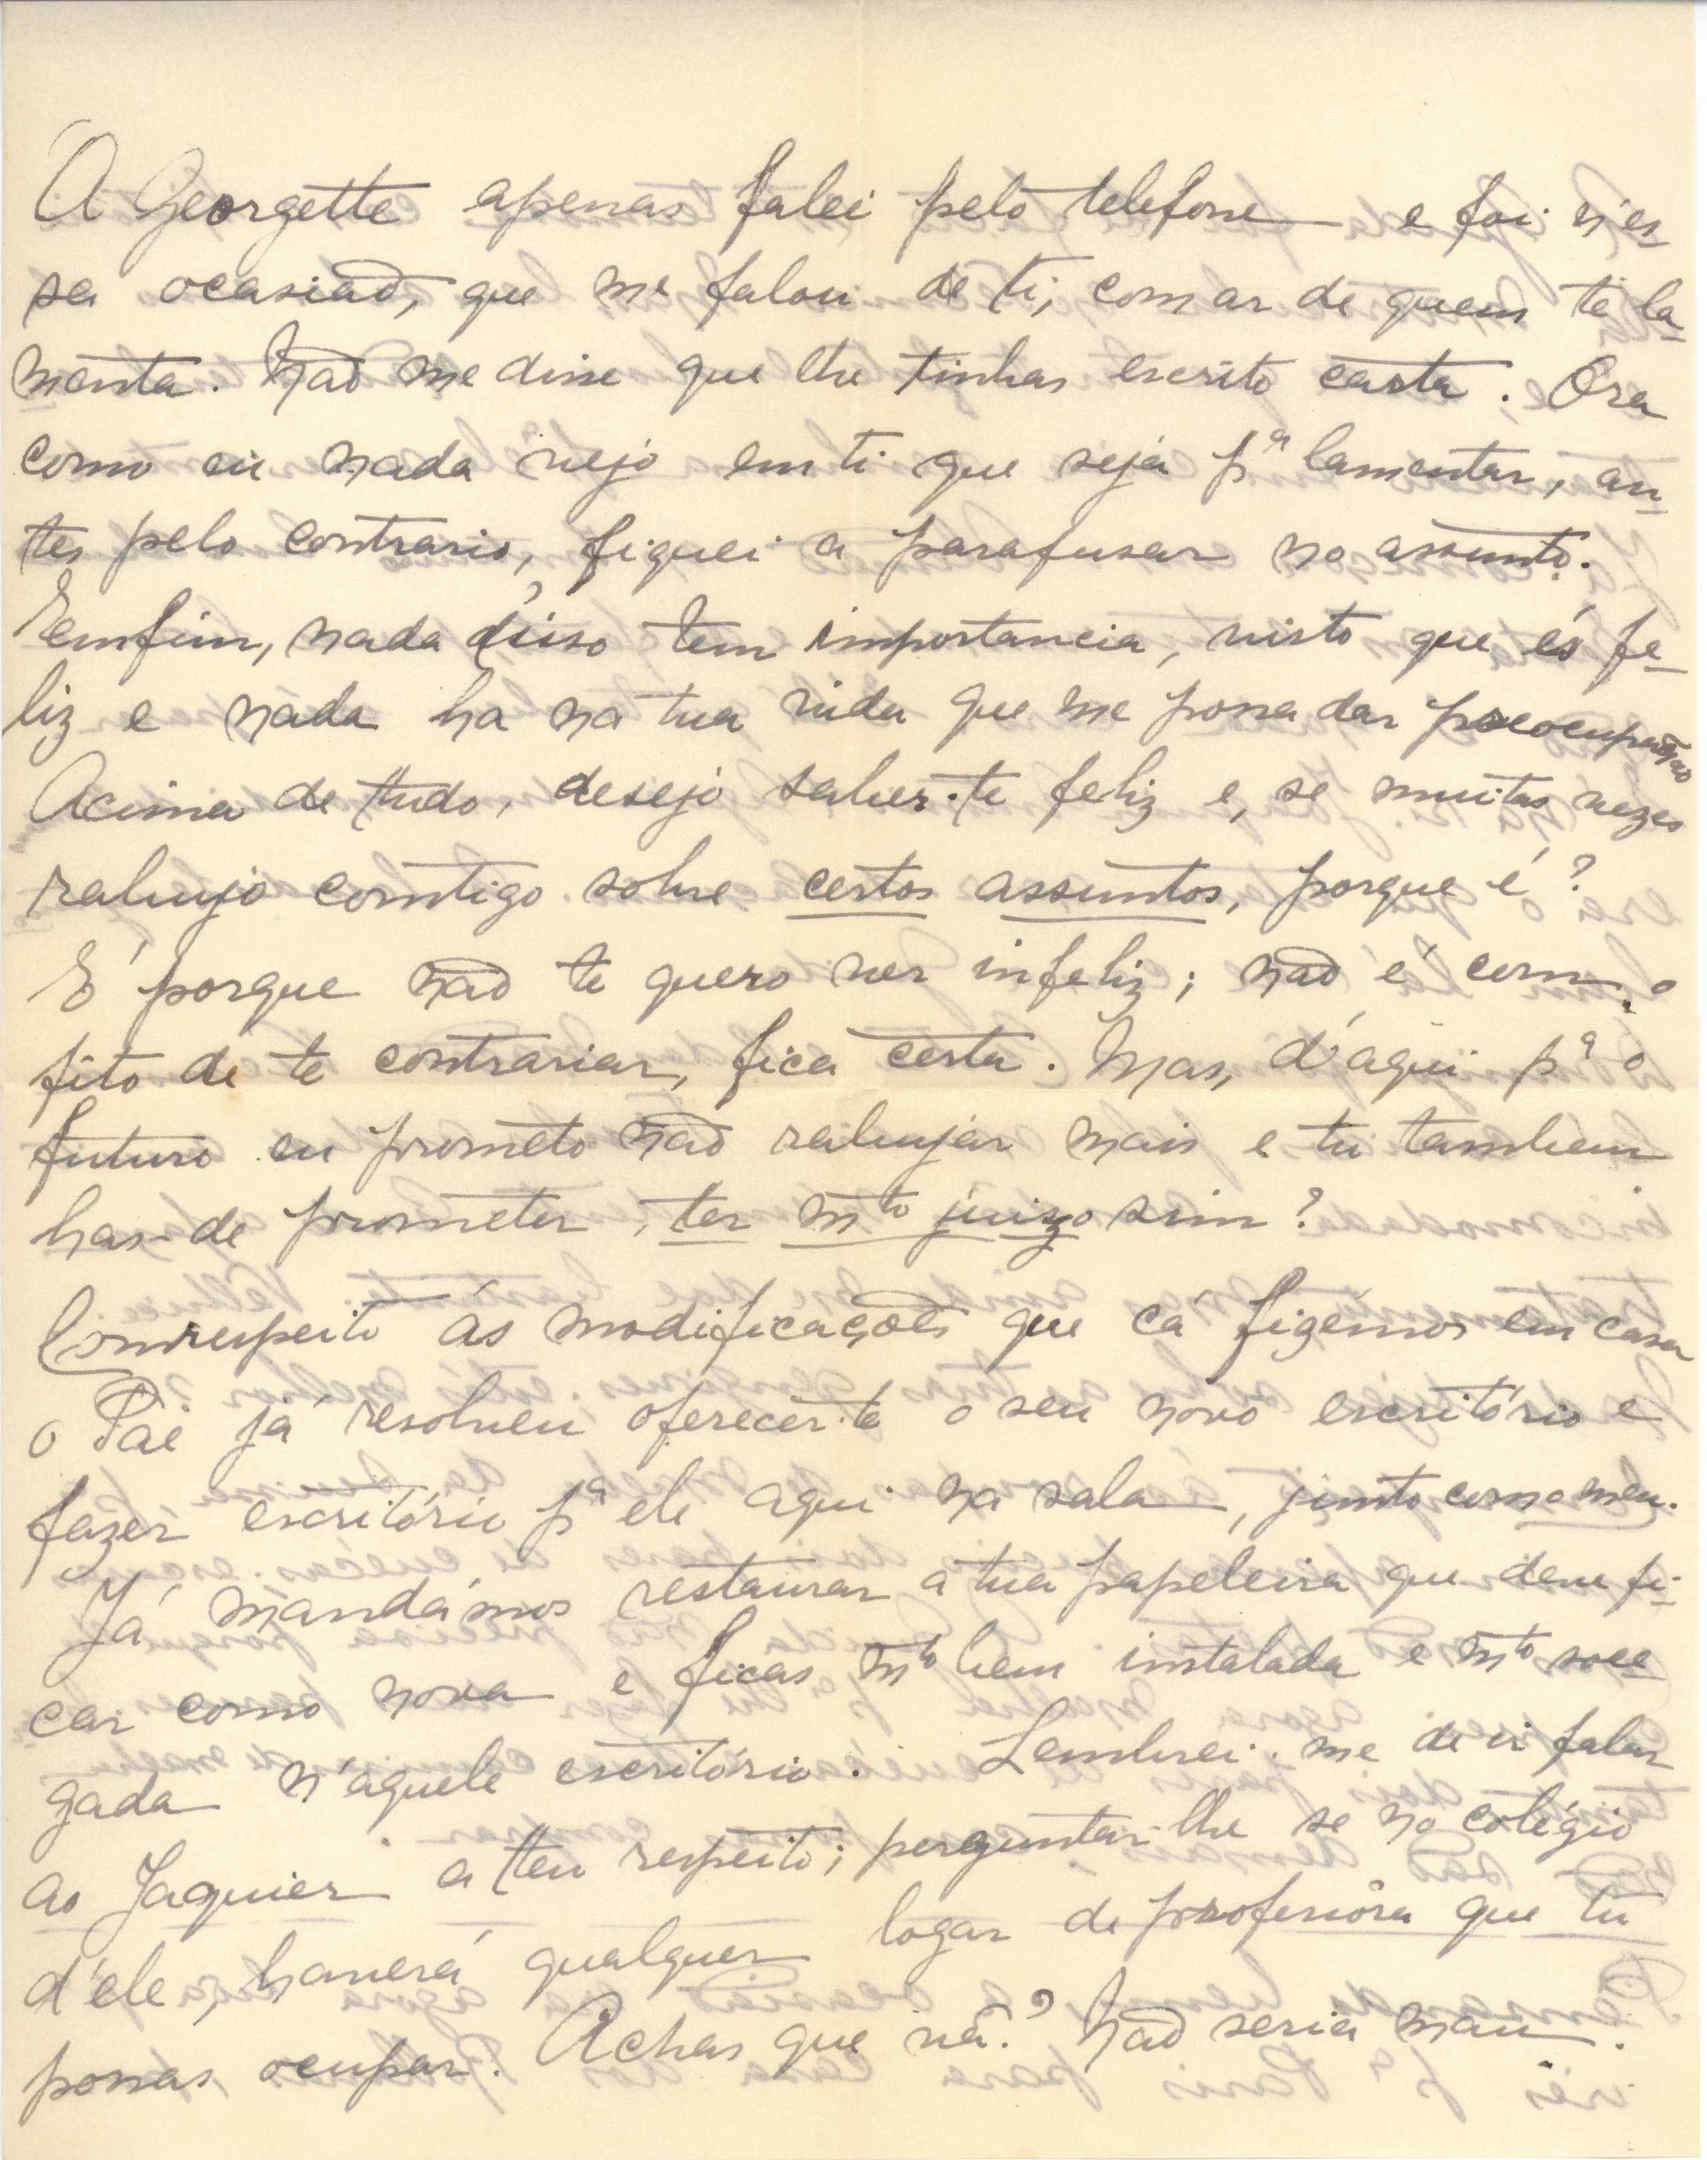 Á Georgette apenas falei pelo telefone e foi n'es
sa ocasião, que me falou de ti, com ar de quem te la-
menta. Não me disse que lhe tinhas escrito carta. Ora
como eu nada vejo em ti que seja pª lamentar, an-
tes pelo contrario, fiquei a parafusar no assunto.
Emfim, nada disso tem importancia, visto que és fe-
liz e nada ha na tua vida que me possa dar preocupação
Acima de tudo, desejo saber-te feliz e, se muitas vezes
rabujo comtigo sobre certos assuntos, porque é?
É porque não te quero ver infeliz; não é com o
fito de te contrariar, fica certa. Mas, d'aqui pª o
futuro eu prometo não rabujar mais e tu tambem
has-de prometer, ter mto juizo sim?
Com respeito ás modificações que cá fizémos em casa
o Pai já resolveu oferecer-te o seu novo escritório e
fazer escritório pª ele aqui na sala, junto com o meu.
Já mandámos restaurar a tua papeleira que deve fi-
car como nova e ficas mto bem instalada e mto soce
gada n'aquele escritório. Lembrei-me de ir falar
ao Jaquier a teu respeito; perguntar-lhe se no colégio
d'ele, haverá qualquer logar de professôra que tu
possas ocupar. Achas que vá? Não seria mau.